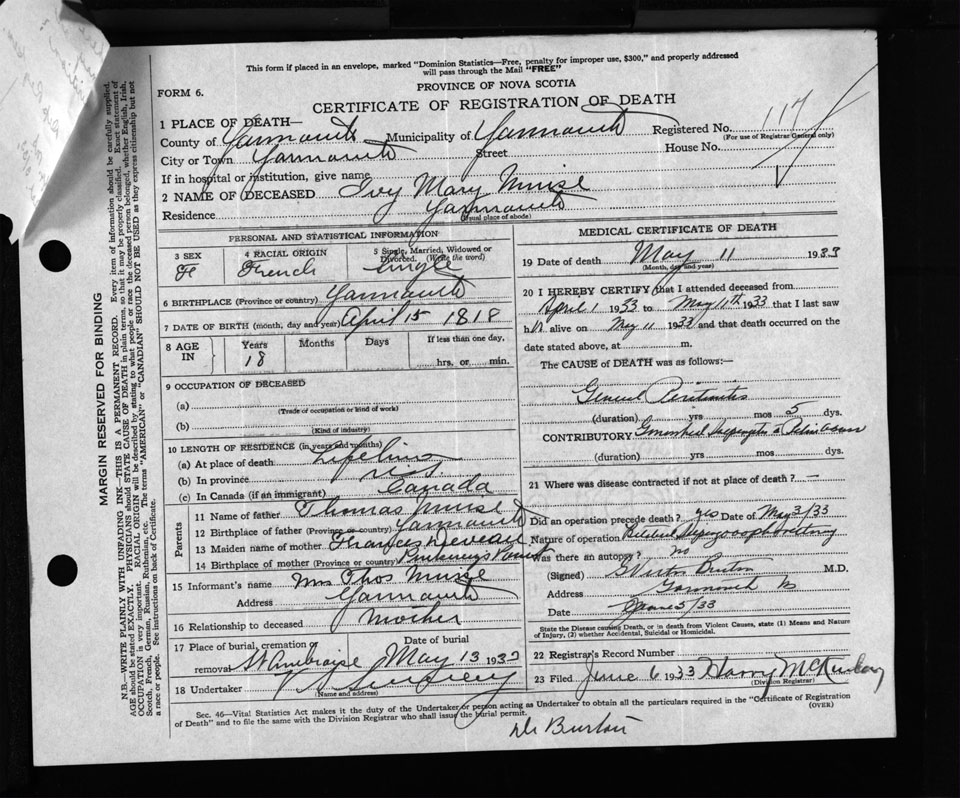 This form if placed in an envelope, marked "Dominion Statistics—Free, penalty for improper use, $300," and properly addressed
will pass through the Mail "FREE"
PROVINCE OF NOVA SCOTIA
FORM 6.
CERTIFICATE OF REGISTRATION OF DEATH
1 PLACE OF DEATH—
County of Yarmouth Municipality of Yarmouth Registered No. 117
(For use of Registrar General only)
City or Town Yarmouth Street House No.
If in hospital or institution, give name
2 NAME OF DECEASED Ivy Mary Muise
Residence Yarmouth
(Usual place of abode)
PERSONAL AND STATISTICAL INFORMATION
3 SEX 4 RACIAL ORIGIN 5 Single, Married, Widowed or
Divorced. (Write the word)
F French single
6 BIRTHPLACE (Province or country) Yarmouth
7 DATE OF BIRTH (month, day and year) April 15 1818
8 AGE IN Years Months Days If less than one day,
18 hrs. or min.
9 OCCUPATION OF DECEASED
(a)
(Trade of occupation or kind of work)
(b)
(Kind of industry)
10 LENGTH OF RESIDENCE (in years and months)
(a) At place of death Lifetime
(b) In province N.S.
(c) In Canada (if an immigrant) Canada
Parents
11 Name of father Thomas Muise
12 Birthplace of father (Province or country) Yarmouth
13 Maiden name of mother Frances Deveau
14 Birthplace of mother (Province or country) Pinkneys Point
15 Informant's name Mrs Thos Muise
Address Yarmouth
16 Relationship to deceased Mother
17 Place of burial, cremation or Date of burial
removal St Ambroise May 13 1933
18 Undertaker V S Sweeny
(Name and address)
MEDICAL CERTIFICATE OF DEATH
19 Date of death May 11 1933
(Month, day and year)
20 I HEREBY CERTIFY that I attended deceased from
April 1 1933 to May 11th 1933 that I last saw
h er alive on May 11 1933 and that death occurred on the
date stated above, at m.
The CAUSE of DEATH was as follows:—
General Peritonitis
(duration) yrs mos 5 dys.
CONTRIBUTORY
(duration) yrs mos dys.
21 Where was disease contracted if not at place of death?
Did an operation precede death? yes Date of May 3/33
Nature of operation Bilateral
Was there an autopsy? no
(Signed) Burton M.D.
Address Yarmouth NS
Date June 5/33
State the Disease causing Death, or in death from Violent Causes, state (1) Means and Nature
of Injury, (2) whether Accidental, Suicidal or Homicidal.
22 Registrar's Record Number
23 Filed June 6 1933 Harry McKinlay
(Division Registrar)
Sec. 46—Vital Statistics Act makes it the duty of the Undertaker or person acting as Undertaker to obtain all the particulars required in the "Certificate of Registration
of Death" and to file the same with the Division Registrar who shall issue the burial permit.
(OVER)
Dr Burton
MARGIN RESERVED FOR BINDING
N.B.—WRITE PLAINLY WITH UNFADING INK—THIS IS A PERMANENT RECORD. Every item of information should be carefully supplied.
AGE should be stated EXACTLY. PHYSICIANS should STATE CAUSE OF DEATH in plain terms, so that it may be properly classified. Exact statement of
OCCUPATION is very important. RACIAL ORIGIN will be described by stating to what people or race the deceased person belonged, whether English, Irish,
Scotch, French, German, Russian, Ruthenian, etc. The terms "AMERICAN" or "CANADIAN" SHOULD NOT BE USED as they express citizenship but not
a race or people. See instructions on back of Certificate.